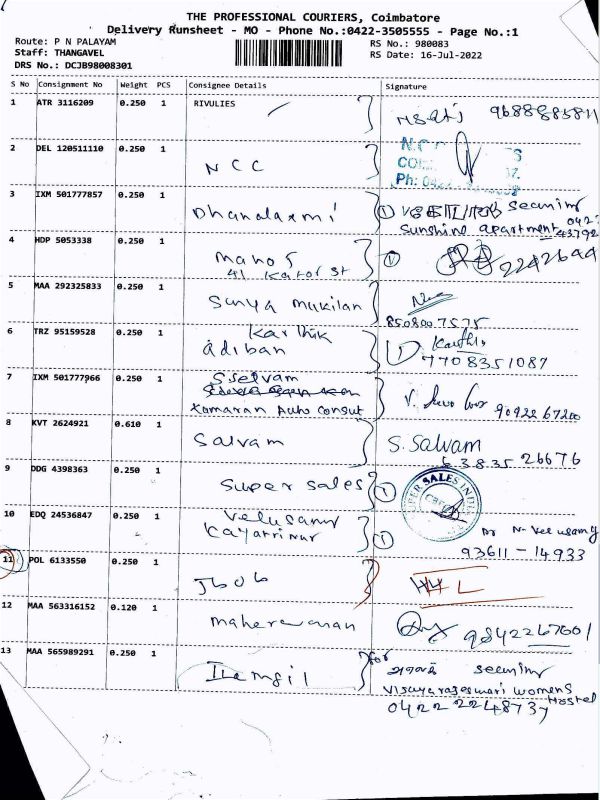 THE PROFESSIONAL COURIERS, Coimbatore
Delivery Runsheet - MO - Phone No.:0422-3505555 - Page No.:1
Route: P N PALAYAM
Staff: THANGAVEL
DRS No.: DCJB98008301
RS No.: 980083
RS Date: 16-Jul-2022
S No Consignment No Weight PCS Consignee Details Signature
1 ATR 3116209 0.250 1 RIVULIES
2 DEL 120511110 0.250 1 NCC
Ph:
3 IXM 501777857 0.250 1 Dhanalaxmi
Sunshine apartment
4 HDP 5053338 0.250 1 Manos
41 Kator st
2242644
5 MAA 292325833 0.250 1 Surya Mukilan
8508007575
6 TRZ 95159528 0.250 1 Karthik
adiban
7708351087
7 IXM 501777966 0.250 1 S.selvam
Komaran Auto Consut
9092267200
8 KVT 2624921 0.610 1 Salvam S. Salvam
63835 26676
9 DDG 4398363 0.250 1 Super sales
SUPER SALES INDIA
10 EDQ 24536847 0.250 1 Velusamy
N. Velusamy
93611-14933
11 POL 6133550 0.250 1
12 MAA 563316152 0.120 1
9842267601
13 MAA 565989291 0.250 1
for
Vijayarajeswari womens
Hostel
0422 2248737